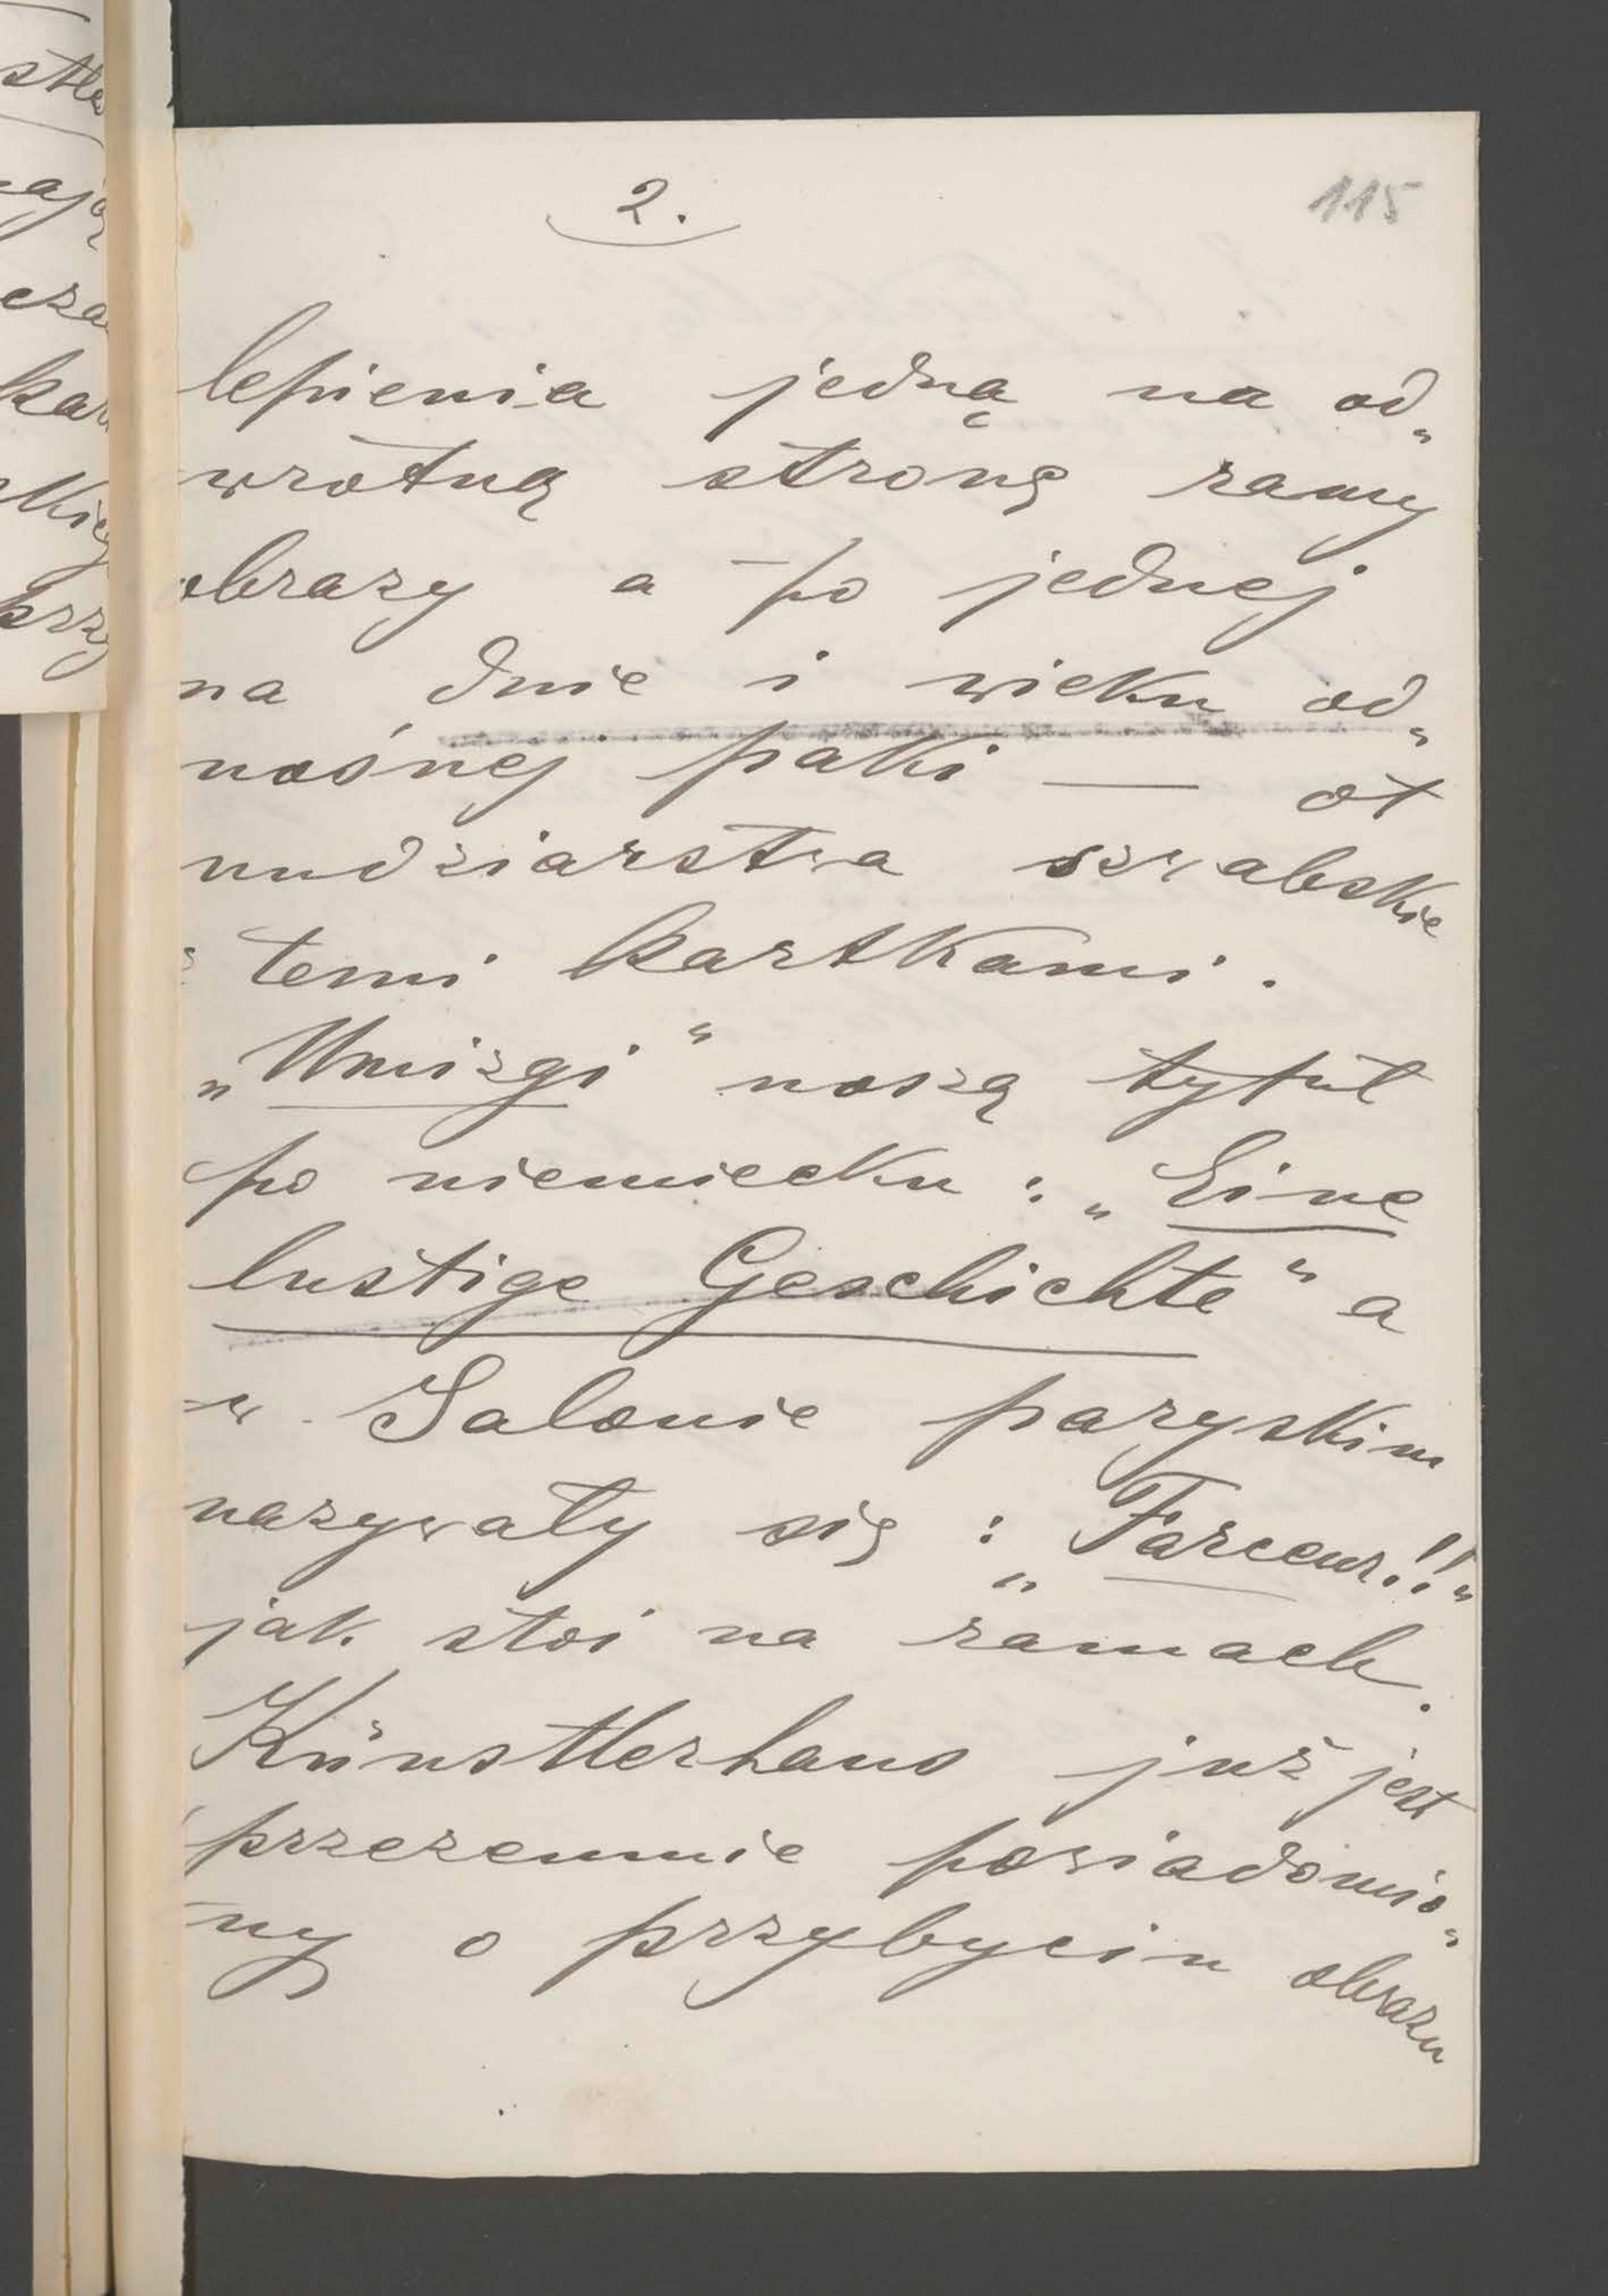 2.
115
lepienia jedną na od„
wrotną stronę ramy
obrazy a po jednej
na dnie i wieku od„
nośnej paki — ot
nudziarstwa szwabskie
z temi kartkami.
„Umizgi“ noszą tytuł
po niemiecku: „Eine
lustige Geschichte“ a
w Salonie paryskim
nazywały się: „Farceur!!“
jak stoi na ramach.
Künstlerhaus już jest
przezemnie powiadomio„
ny o przybyciu obrazu